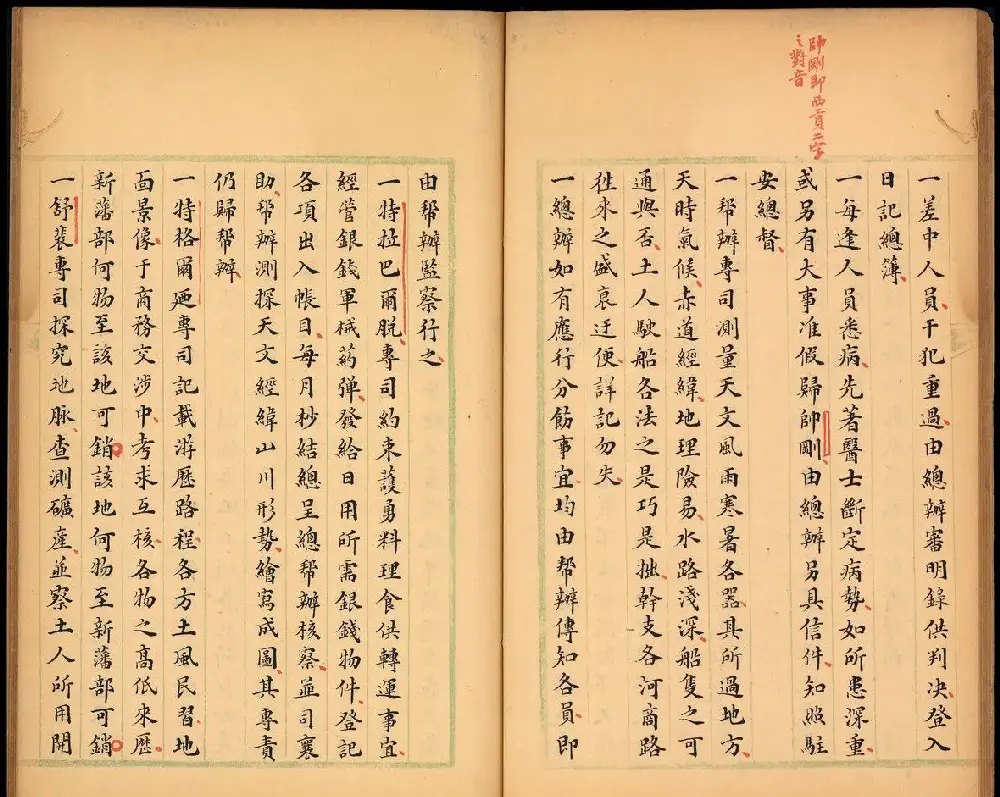 帥剛即西貢二字
之對音
一差中人員干犯重過由總辦審明錄供判决登入
日記總簿
一每逢人員患病先著醫士斷定病勢如所患深重
或另有大事准假歸帥剛由總辦另具信件知照駐
安總督
一帮辦專司測量天文風雨寒暑各器其所過地方
天時氣候赤道經緯地理險易水路淺深船隻之可
通與否土人駛船各法之是巧是拙幹支各河商路
徃來之盛衰迂便詳記勿失
一總辦如有應行分飭事宜均由帮辦傳知各員即
由帮辦監察行之
一特拉巴爾脱專司約束護勇料理食供轉運事宜
經管銀錢軍械药弹發給日用所需銀錢物件登記
各項出入帳目每月杪結總呈總帮辦核察並司襄
助帮辦測探天文經緯山川形勢繪寫成圖其專責
仍歸帮辦
一特格爾迺專司記載游歷路程各方土風民習地
面景像于商務交涉中考求互核各物之高低來歷
新藩部何物至該地可銷該地何物至新藩部可銷
一舒裴專司探究地脉查測礦產並察土人所用開